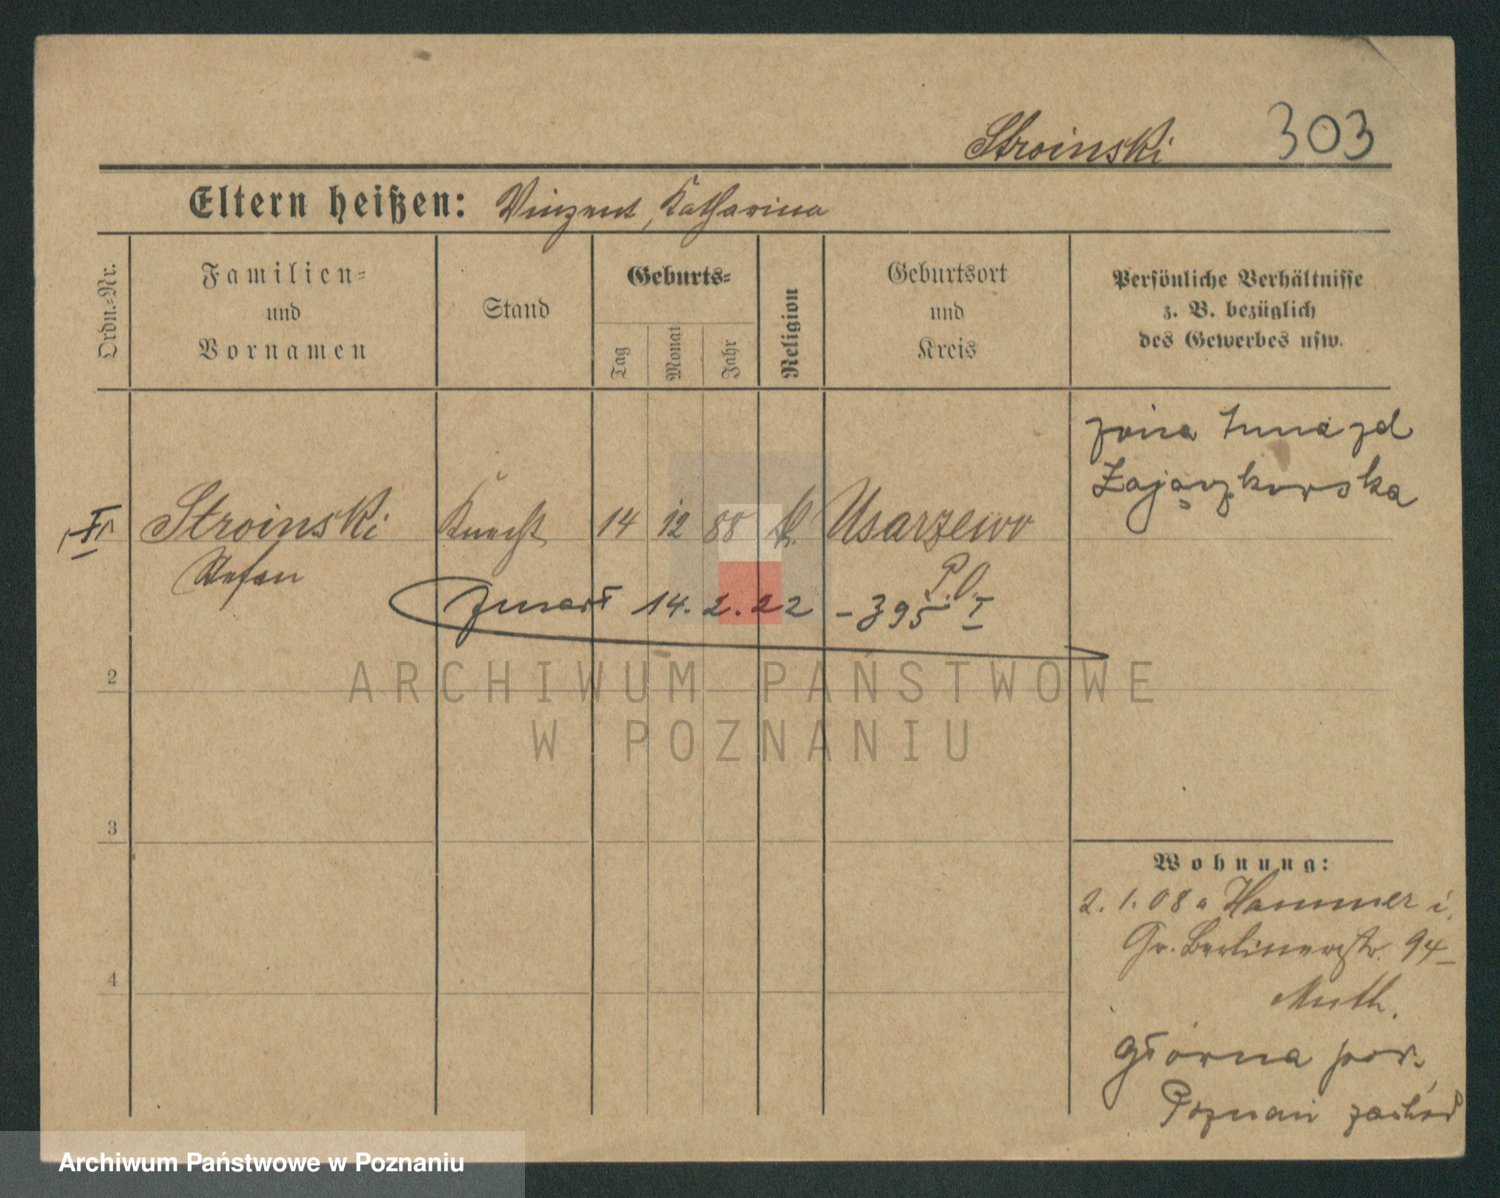 Stroinski 303
Eltern heißen: Vinzent, Katharina
Ordn.-Nr.
Familien-
und
Vornamen
Stand
Geburts-
Tag
Monat
Jahr
Religion
Geburtsort
und
Kreis
Persönliche Verhältnisse
z. B. bezüglich
des Gewerbes usw.
żona
Zajączkowska
I Stroinski Knecht 14 12 88 k. Usarzewo
Stefan
P.O.
zmarł 14.2.22 - 395 I
ARCHIWUM PAŃSTWOWE
W POZNANIU
2
3
4
Wohnung:
2.1.08 a Hammer i.
Gr. Berlinerstr. 94
Muth.
Główna pow.
Poznań zachód
Archiwum Państwowe w Poznaniu